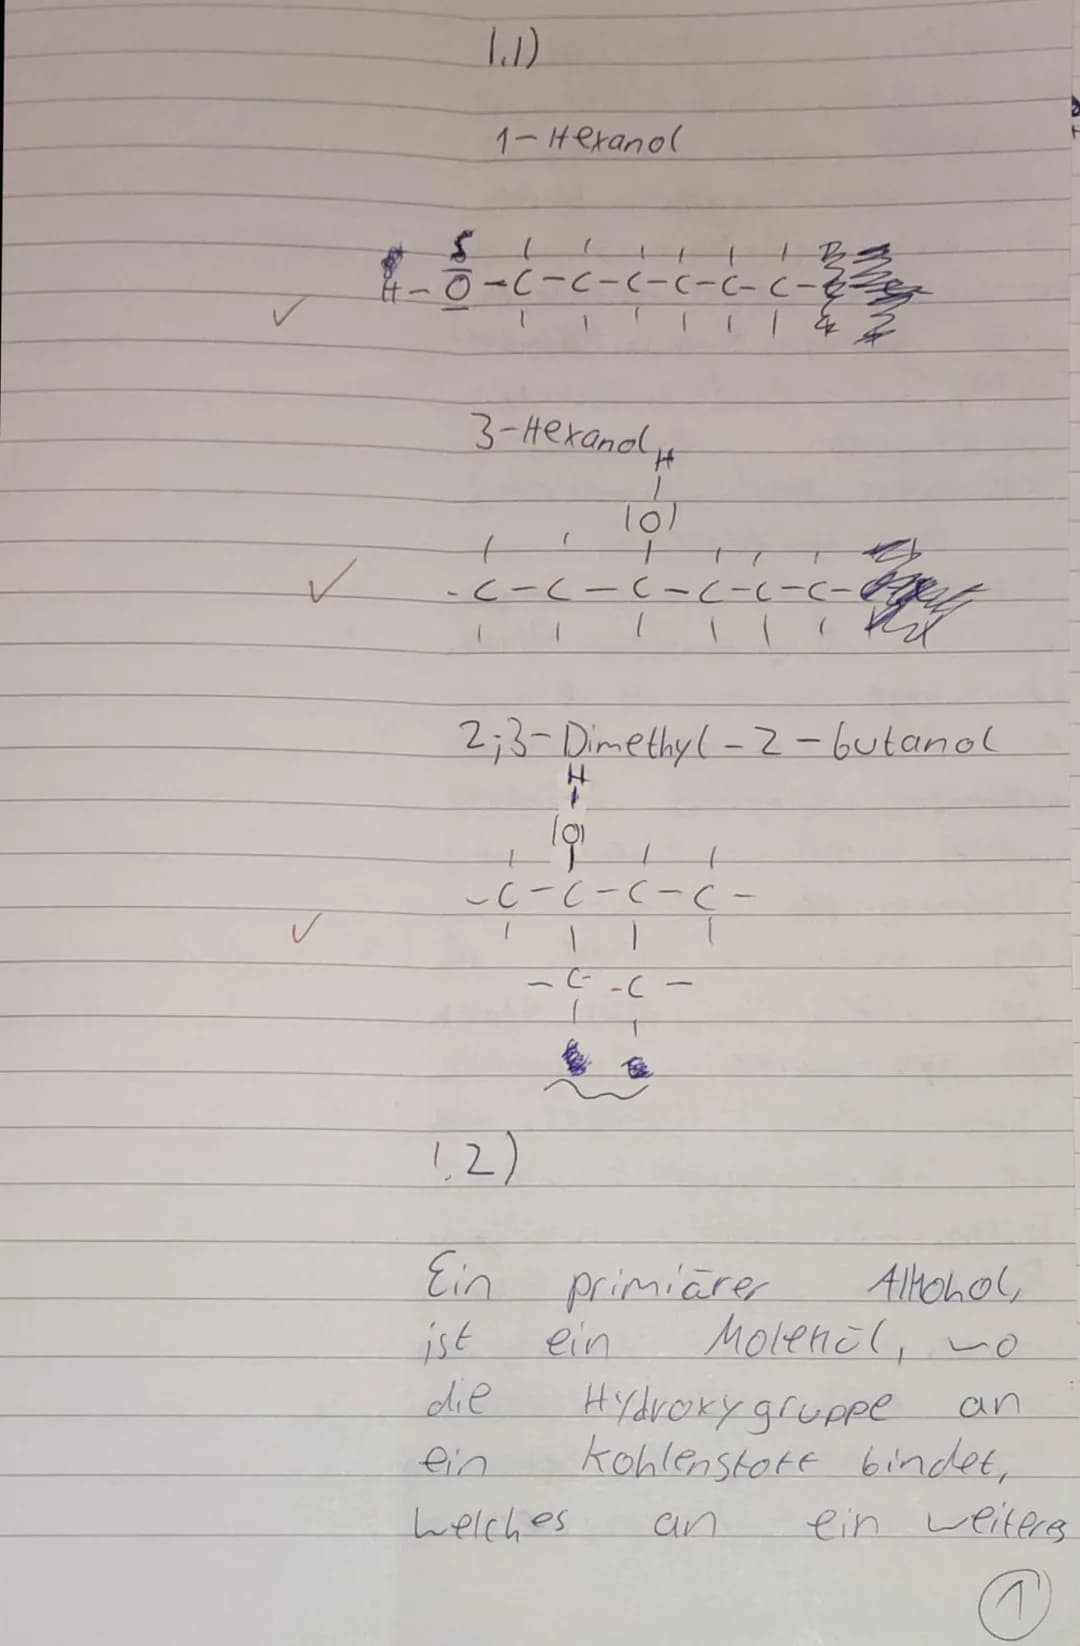 1.1)
1-Hexanol
H-O-C-C-C-C-C-C-
3-Hexanol
H
|O|
-C-C-C-C-C-C-
2;3-Dimethyl-2-butanol
H
|O|
-C-C-C-C-
-C- -C-
1.2)
Ein primiärer Alkohol,
ist ein Molekül, wo
die Hydroxygruppe an
ein Kohlenstoff bindet,
welches an ein weiteres
1